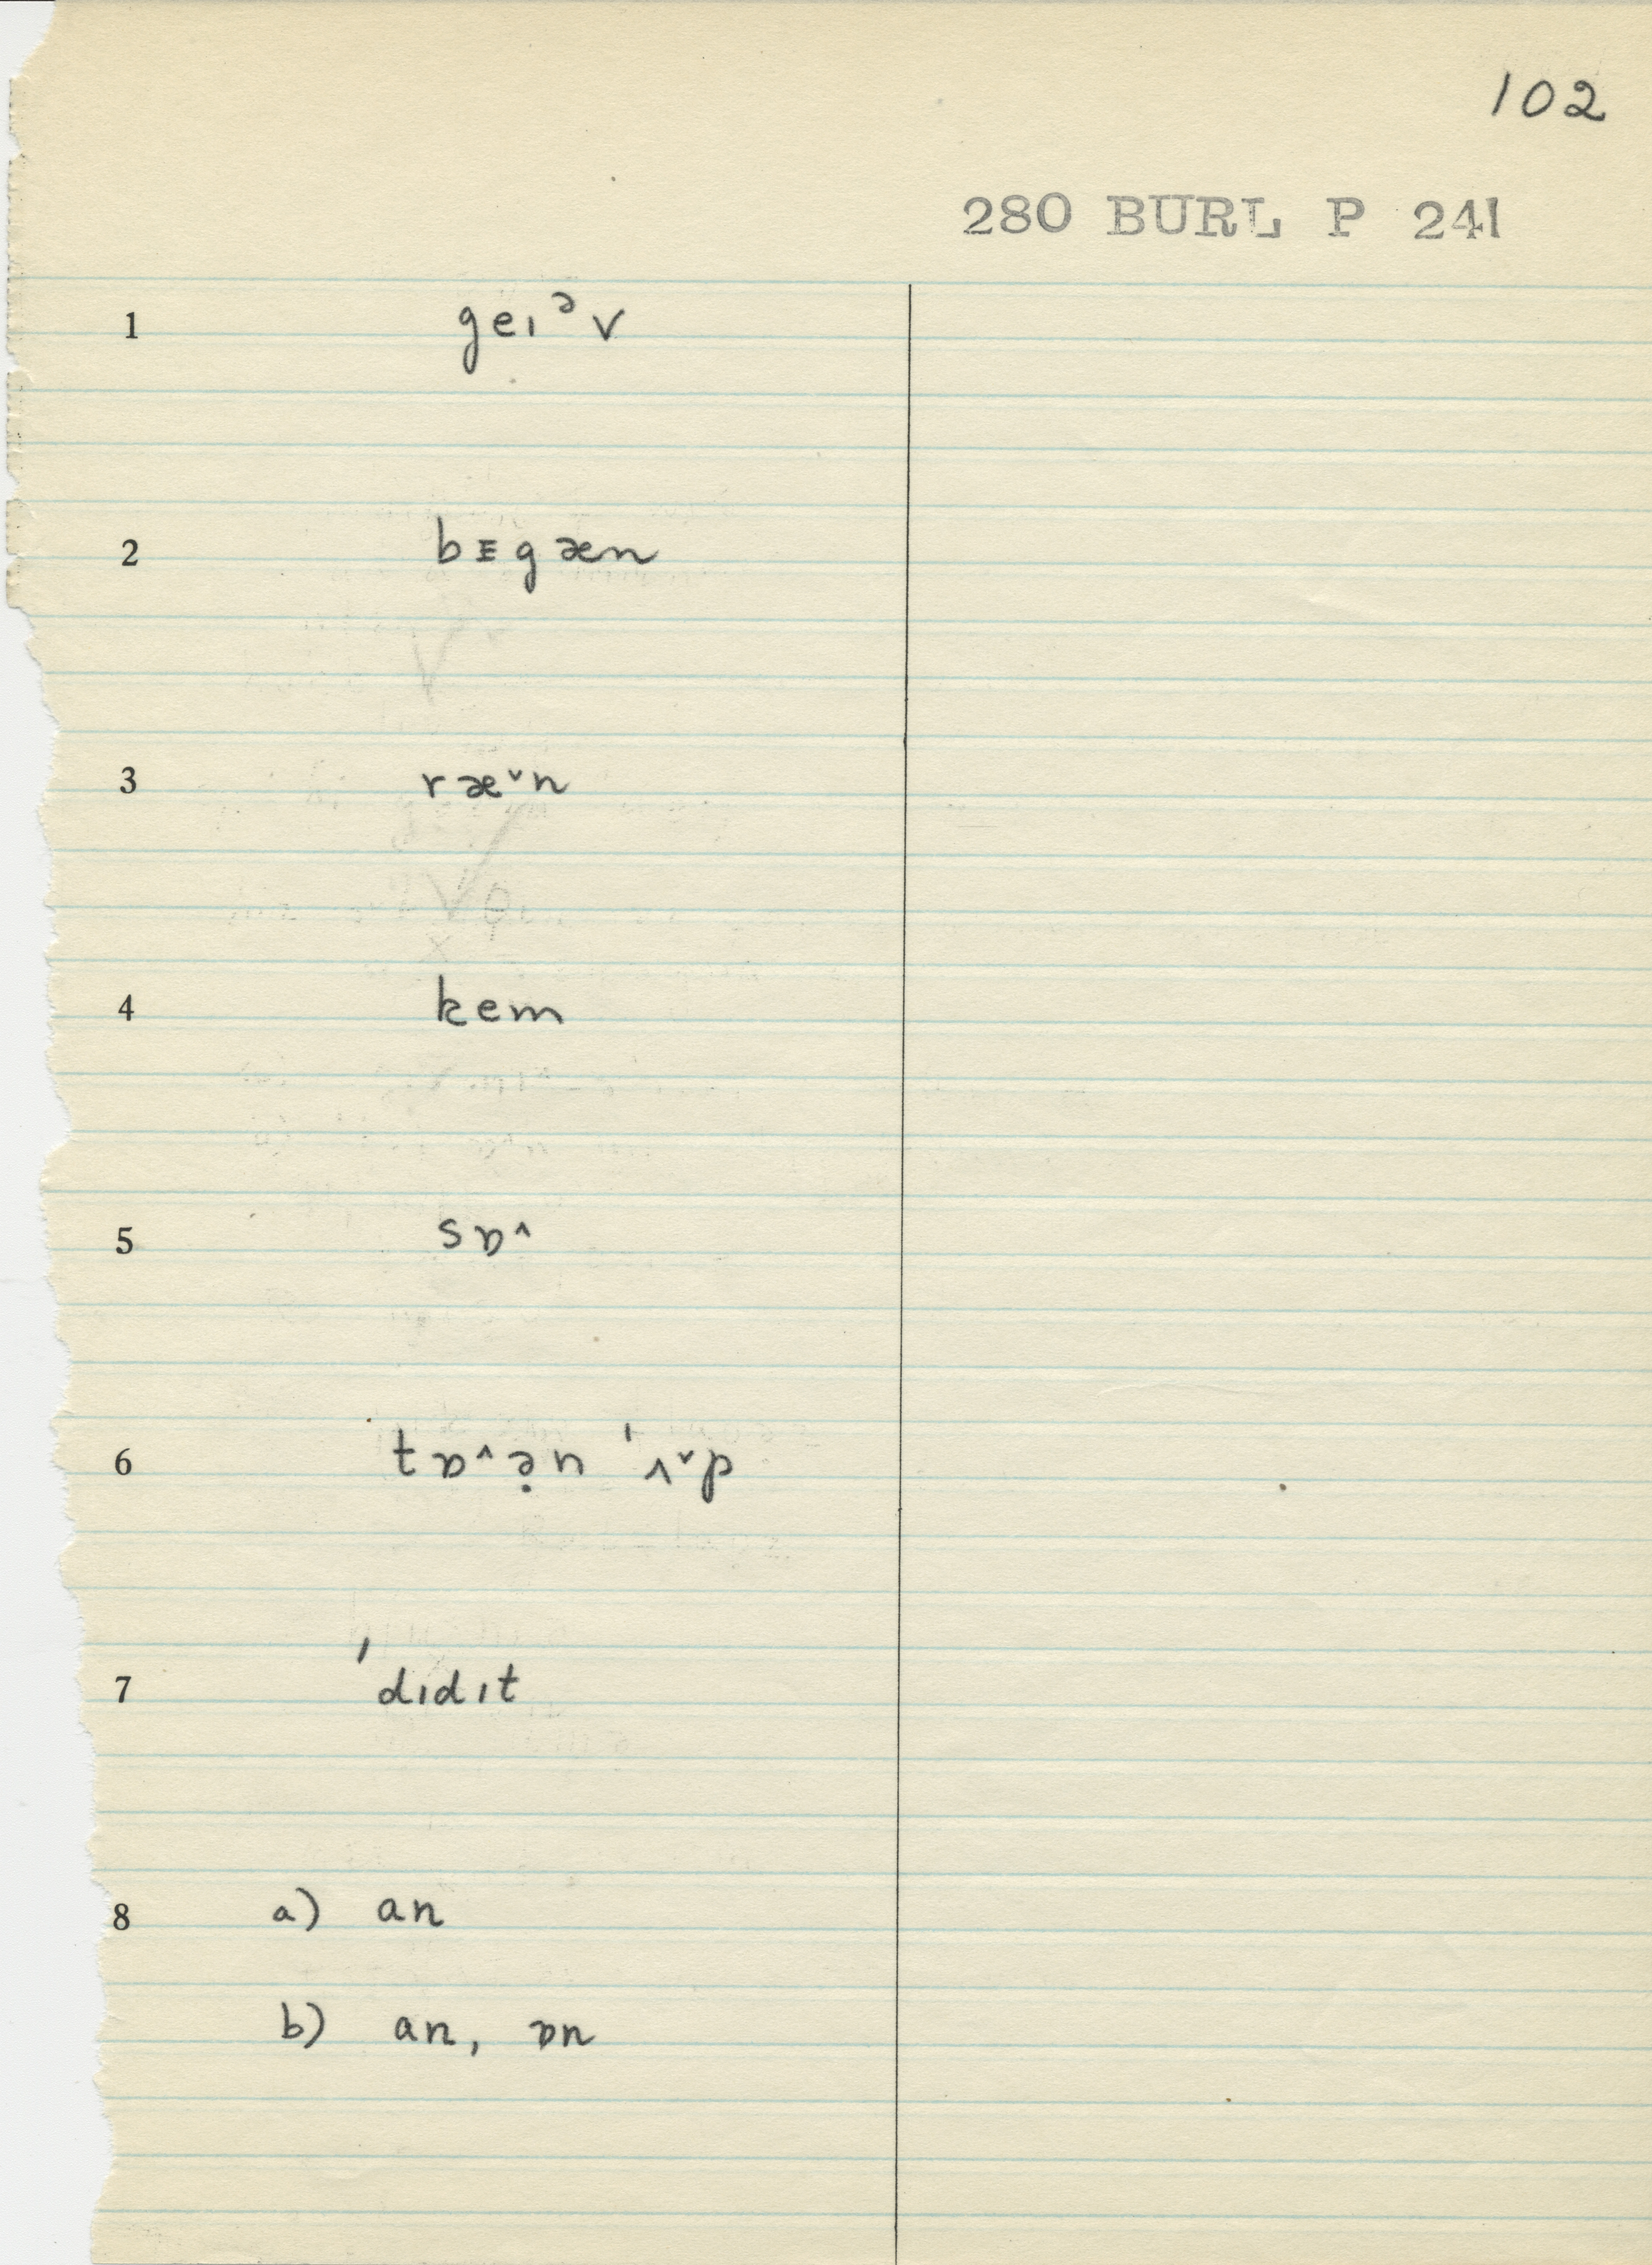 102
280 BURL P 241
1 geɪᵊv
2 bᵻgæn
3 ræ˅n
4 kem
5 sɒ˄
6 tɒ˄ə̣n ˈʌ˅p
7 ˈdɪdɪt
8 a) an
b) an, ɒn